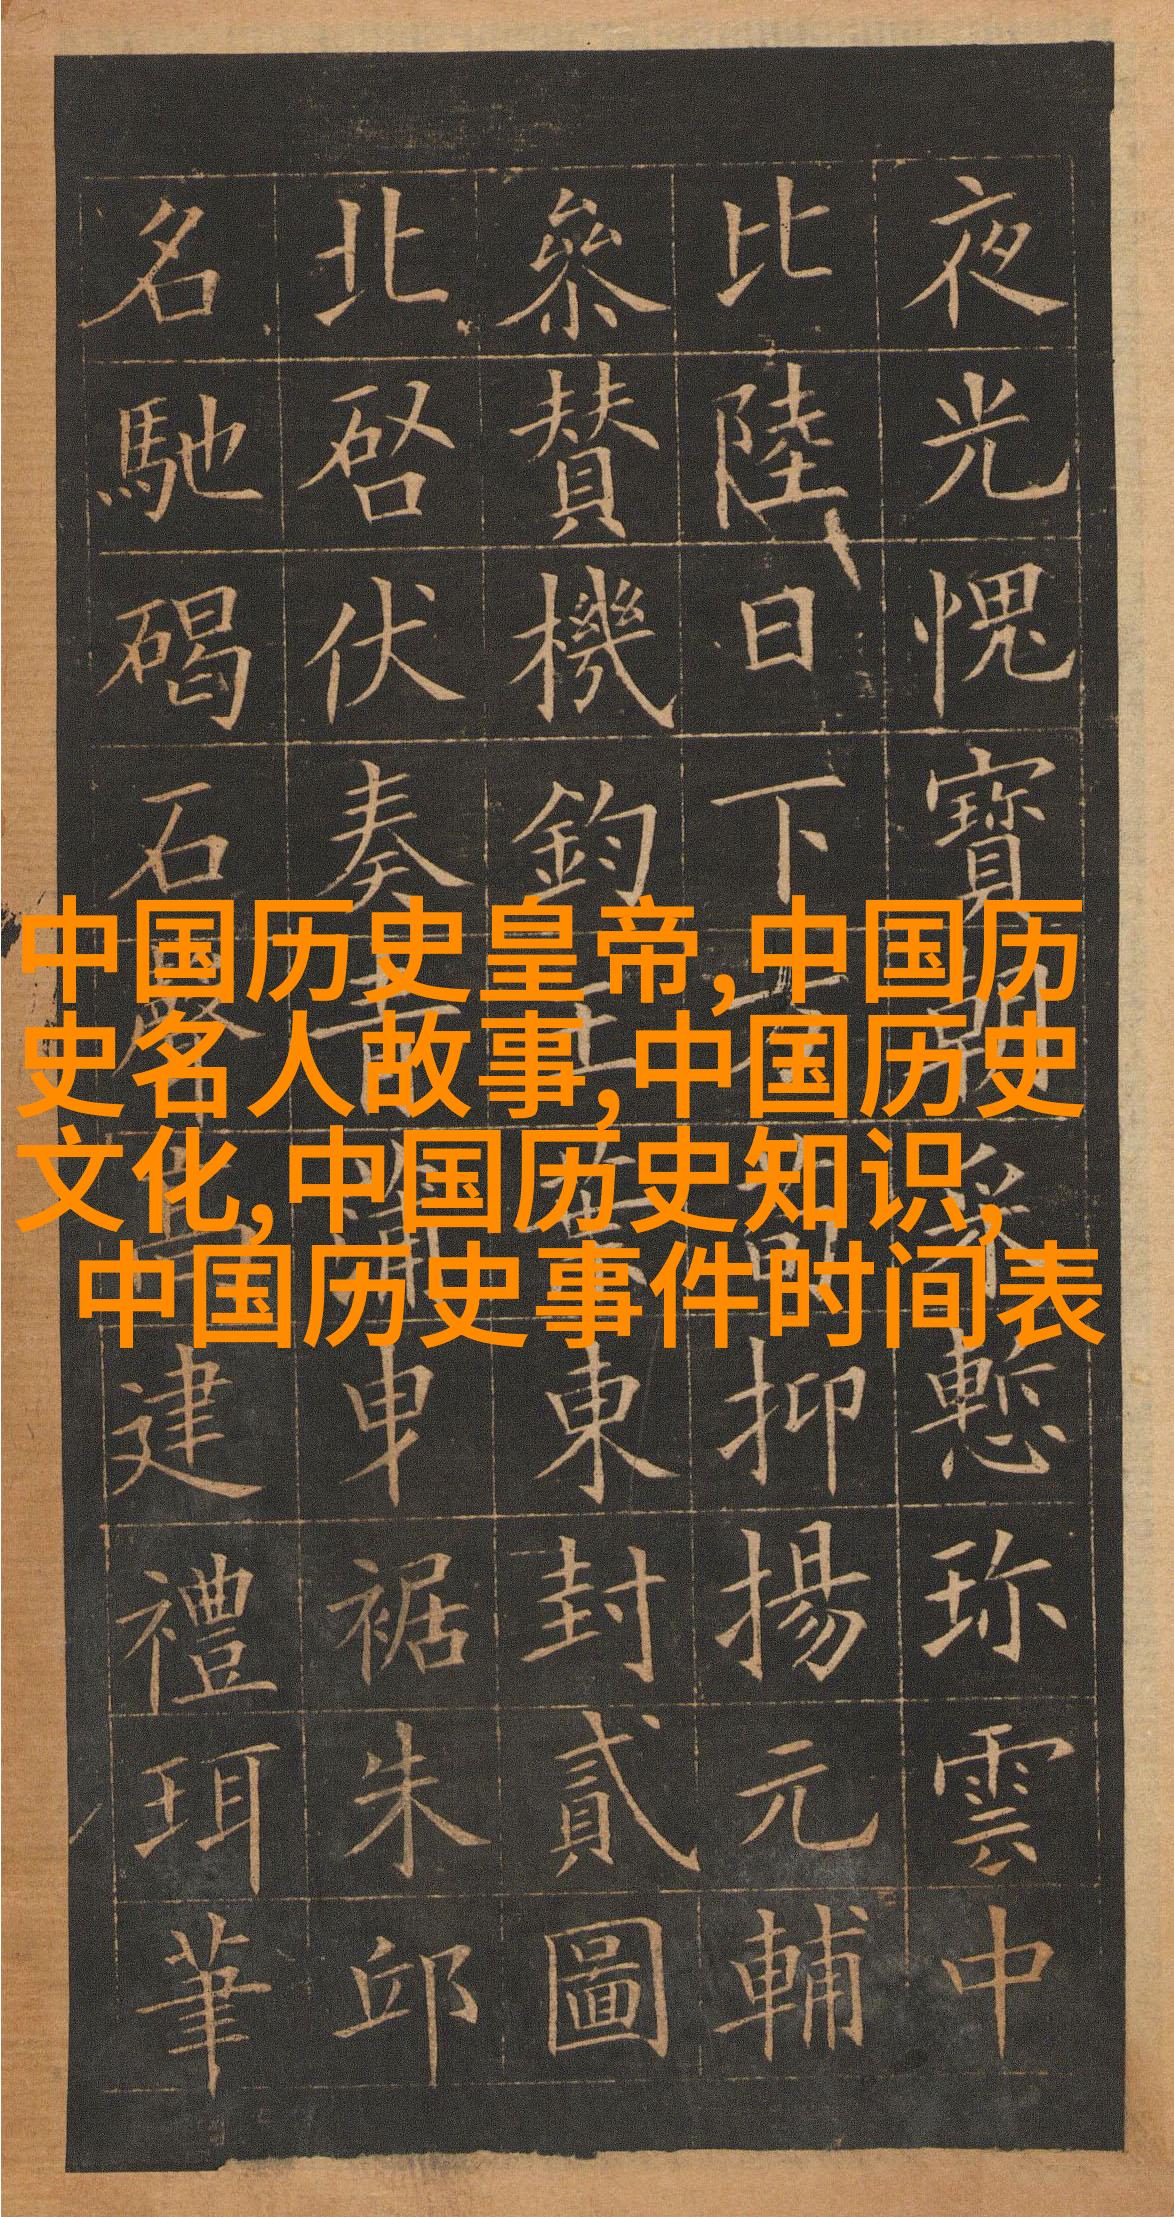 夜光愧寶朗采慙珎雲中
比陸日下抑揚元輔
參賛機鈞東封貳圖
北啓伏奏裾朱邱
名馳碣石建禮珥筆
中国历史皇帝,中国历
史名人故事,中国历史
文化,中国历史知识,
中国历史事件时间表